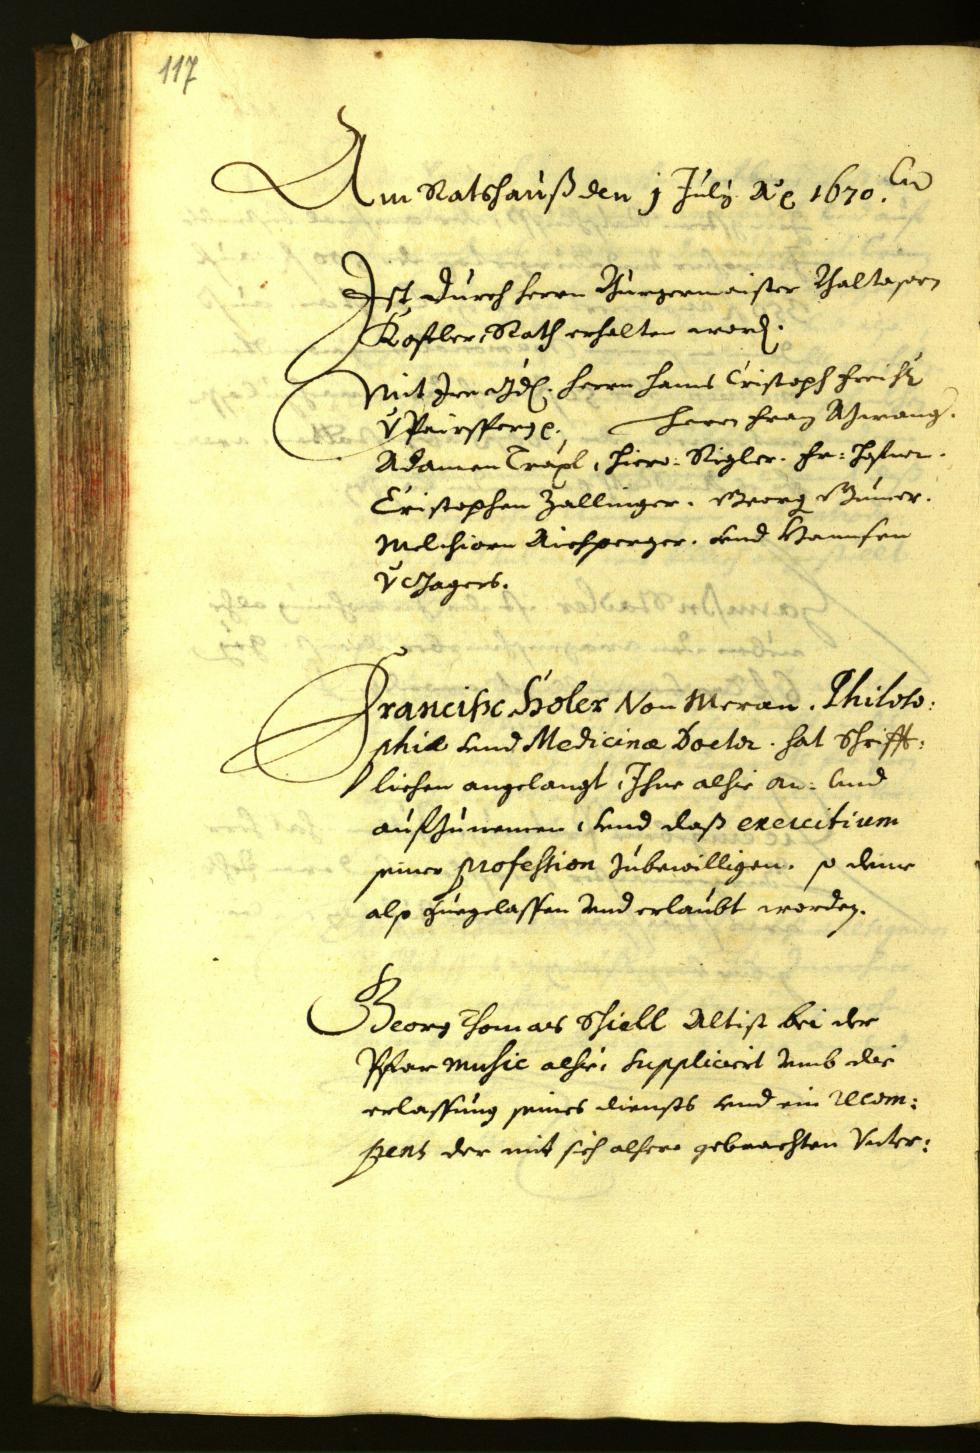 117
Am Ratshauß den 1 July Aº 1670.
Ist durch Herrn Burgermaister Balthasarn
Rath erhalten word.
Mit Herrn Hanns Cristoph
v Herrn Franz
Adamen Träxl, Hiero: Sigler. Fr:
Cristophen Zallinger. Georg
Melchiorn Aichperger. vnd Hannsen
v Jagers.
Francisc Holer Von Meran. Philoso:
phiæ vnd Medicinæ Doctor. hat Schrifft:
lichen angelangt, Ihne alhie an: vnd
aufzunemen, vnd daß exercitium
seiner profession zubewilligen. so deme
also zuegelassen vnd erlaubt worden.
Georg Thomas Schiell Altist bei der
Pfar music alhie, suppliciert vmb die
erlassung seines diensts vnd ein recom:
pens der mit sich alhero gebrachten Vnter: